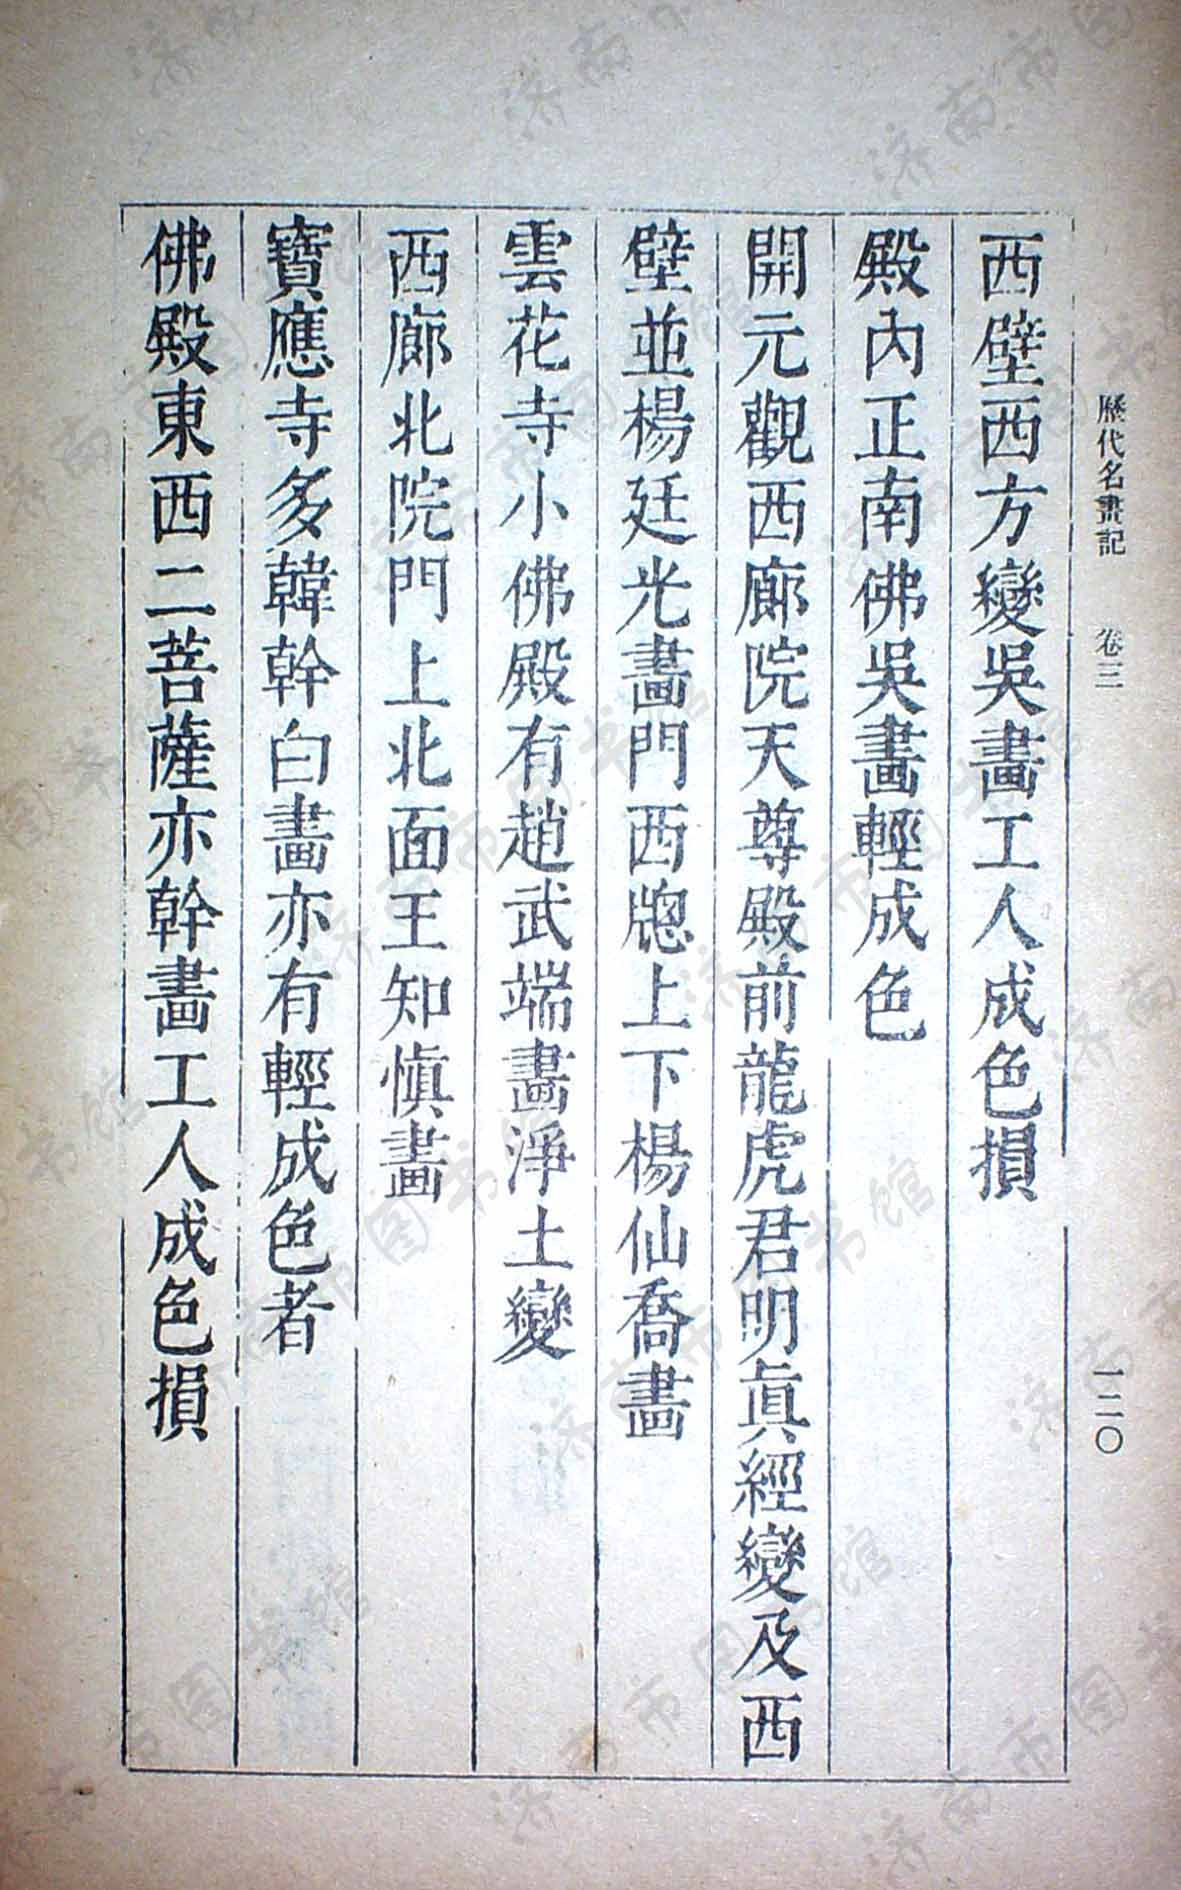 歷代名畫記　卷三　一二〇
西壁西方變吳畫工人成色損
殿內正南佛吳畫輕成色
開元觀西廊院天尊殿前龍虎君明眞經變及西
壁並楊廷光畫門西牕上下楊仙喬畫
雲花寺小佛殿有趙武端畫淨土變
西廊北院門上北面王知愼畫
寶應寺多韓幹白畫亦有輕成色者
佛殿東西二菩薩亦幹畫工人成色損
济南市图书馆